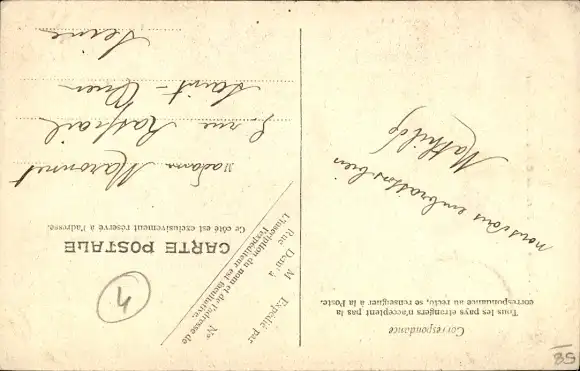 Correspondance
Tous les pays étrangers n'acceptent pas la
correspondance au recto, se renseigner à la Poste.
nous vous embrassons bien
Mathilde
Expédié par
M
Dem.t à
Rue
No
L'inscription du nom et de l'adresse de
l'expéditeur est facultative.
CARTE POSTALE
Ce côté est exclusivement réservé à l'adresse.
Madame Maronnet
8 rue Raspail
Saint-Ouen
Seine
4
85